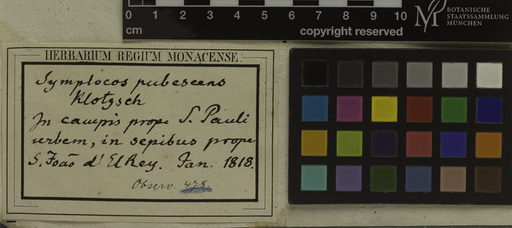 0 1 2 3 4 5 6 7 8 9 10
cm
copyright reserved
M
BOTANISCHE
STAATSSAMMLUNG
MÜNCHEN
HERBARIUM REGIUM MONACENSE.
Symplocos pubescens
Klotzsch
In campis prope S. Pauli
urbem, in sepibus prope
S. João d'ElRey. Jan. 1818.
Observ. 478.